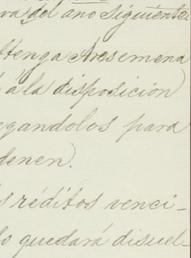 del año siguiente
tenga Arosemena
á la disposicion
gandolos para
denen).
s réditos venci-
lo quedará disuel